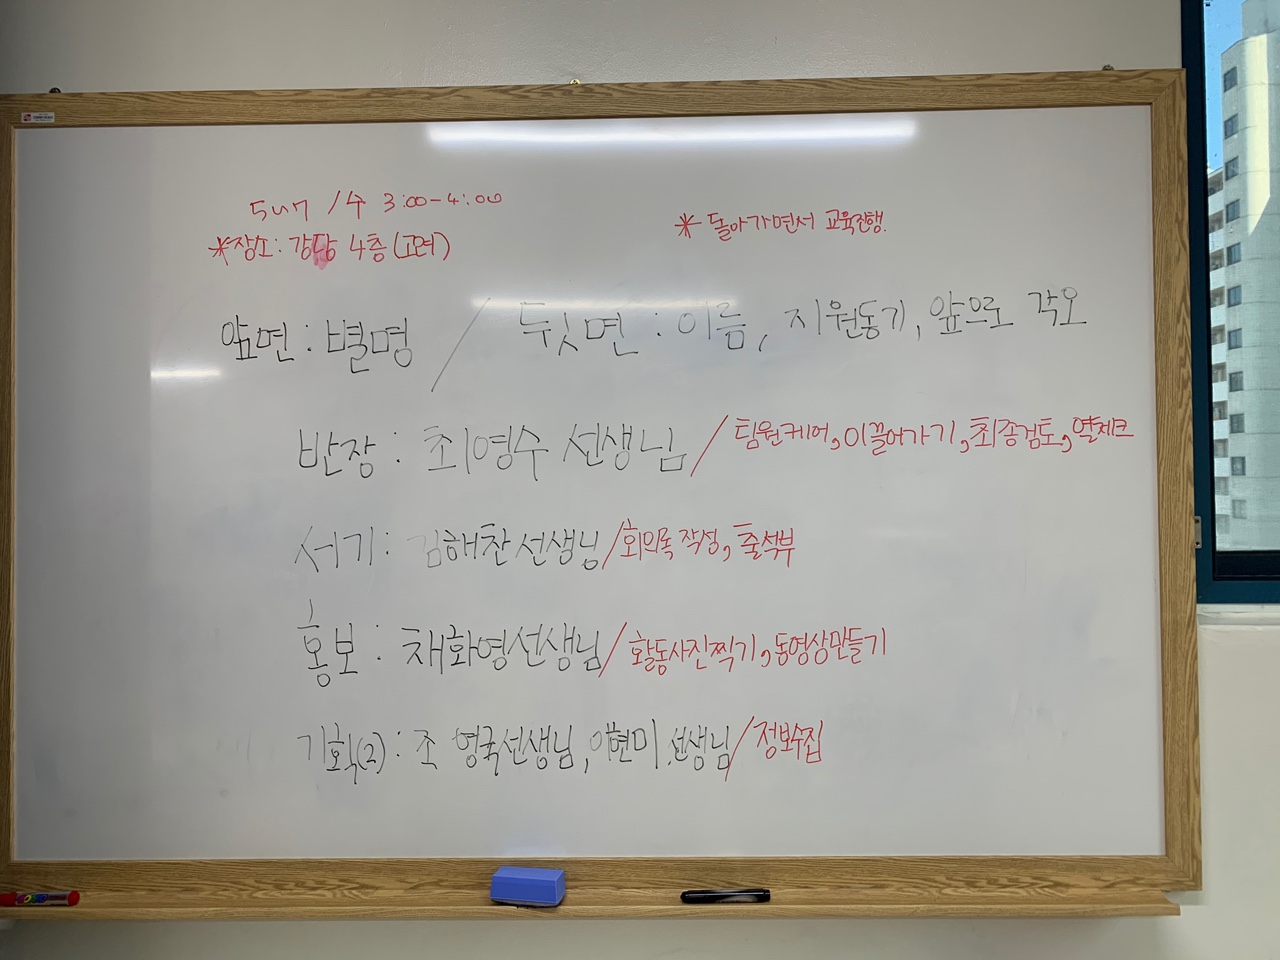 5un7 /수 3:00-4:00
*장소: 강당 4층(고려)
* 돌아가면서 교육진행.
앞면 : 별명 / 뒷면 : 이름, 지원동기, 앞으로 각오
반장 : 최영수 선생님 / 팀원케어, 이끌어가기, 최종검토, 열체크
서기 : 김해찬 선생님 / 회의록 작성, 출석부
홍보 : 채화영선생님 / 활동사진찍기, 동영상만들기
기획(2) : 조 영국선생님, 이현미 선생님 / 정보수집